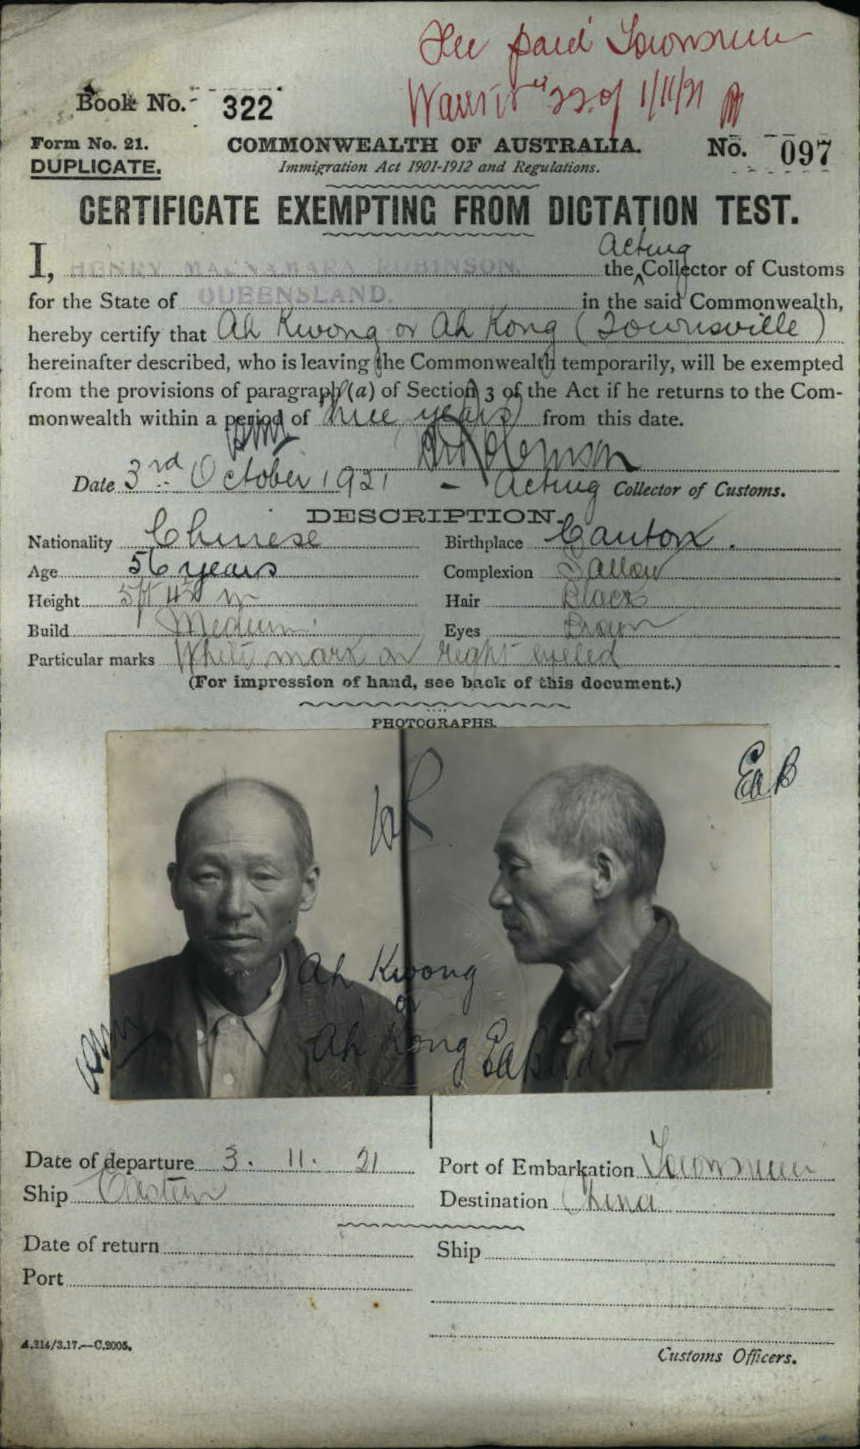 Fee paid Townsville
22 of 1/11/21
Book No. 322
Form No. 21. COMMONWEALTH OF AUSTRALIA. No. 097
DUPLICATE. Immigration Act 1901-1912 and Regulations.
CERTIFICATE EXEMPTING FROM DICTATION TEST.
Acting
I, HENRY MACNAMARA ROBINSON, the Collector of Customs
for the State of QUEENSLAND. in the said Commonwealth,
hereby certify that Ah Kwong or Ah Kong (Townsville)
hereinafter described, who is leaving the Commonwealth temporarily, will be exempted
from the provisions of paragraph (a) of Section 3 of the Act if he returns to the Com-
monwealth within a period of years from this date.
Date 3rd October 1921 - Acting Collector of Customs.
DESCRIPTION.
Nationality Chinese Birthplace Canton.
Age 56 years Complexion Sallow
Height 5ft in Hair Black
Build Medium Eyes Brown
Particular marks White mark on right
(For impression of hand, see back of this document.)
PHOTOGRAPHS.
Ah Kwong
or
Ah Kong
Date of departure 3. 11. 21 Port of Embarkation Townsville
Ship Eastern Destination China
Date of return Ship
Port
A.214/3.17.—C.2005.
Customs Officers.